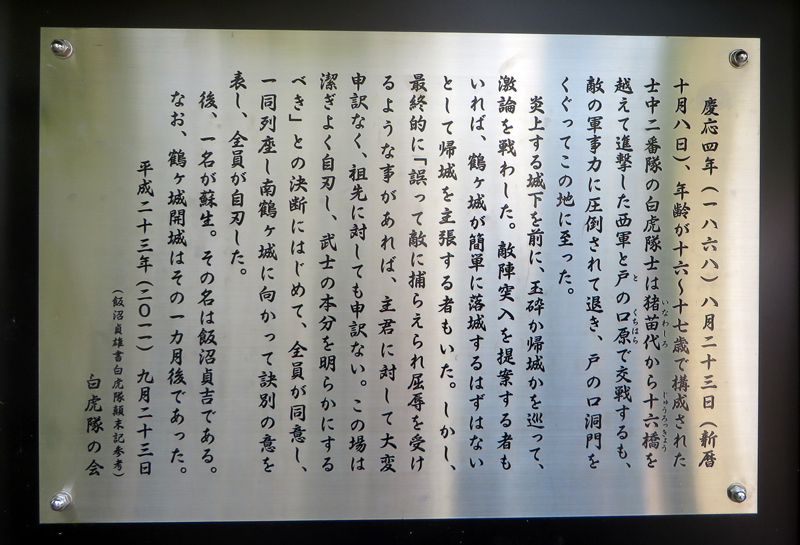 慶応四年（一八六八）八月二十三日（新暦
十月八日）、年齢が十六～十七歳で構成された
士中二番隊の白虎隊士は猪苗代から十六橋を
いなわしろ
じゅうろっきょう
越えて進撃した西軍と戸の口原で交戦するも、
と
くちはら
敵の軍事力に圧倒されて退き、戸の口洞門を
くぐってこの地に至った。
炎上する城下を前に、玉砕か帰城かを巡って、
激論を戦わした。敵陣突入を提案する者も
いれば、鶴ヶ城が簡単に落城するはずはない
として帰城を主張する者もいた。しかし、
最終的に「誤って敵に捕らえられ屈辱を受け
るような事があれば、主君に対して大変
申訳なく、祖先に対しても申訳ない。この場は
潔ぎよく自刃し、武士の本分を明らかにする
べき」との決断にはじめて、全員が同意し、
一同列座し南鶴ヶ城に向かって訣別の意を
表し、全員が自刃した。
後、一名が蘇生。その名は飯沼貞吉である。
なお、鶴ヶ城開城はその一カ月後であった。
平成二十三年（二〇一一）九月二十三日
（飯沼貞雄書白虎隊顛末記参考）
白虎隊の会